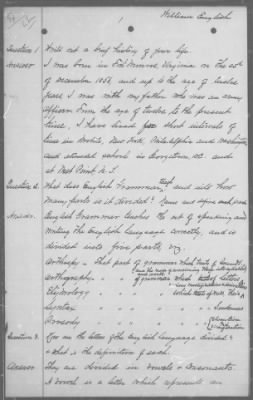 William English
1
Question 1 Write out a brief history of your life.
Answer I was born in Old Monroe, Virginia on the 20th
of December 1854, and up to the age of twelve
years I was with my father who was an army
officer. From the age of twelve to the present
time, I have lived for short intervals of
time in Mobile, New York, Philadelphia and Washington
and attended school in Georgetown, D.C. and
at West Point N.Y.
Question 2. What does English Grammar teach and into how
many parts is it divided? Name and define each part.
Answer. English Grammar teaches the art of speaking and
writing the English language correctly, and is
divided into five parts, viz.
Orthoepy - That part of grammar which treats of Sounds
Orthography " " of grammar which treats of letters
Etymology " " " which treats of
Syntax " " " " Sentences
Prosody " " " "
Question 3. How are the letters of the English language divided?
& What is the definition of each.
Answer They are divided in vowels & consonants.
A vowel is a letter which represents an